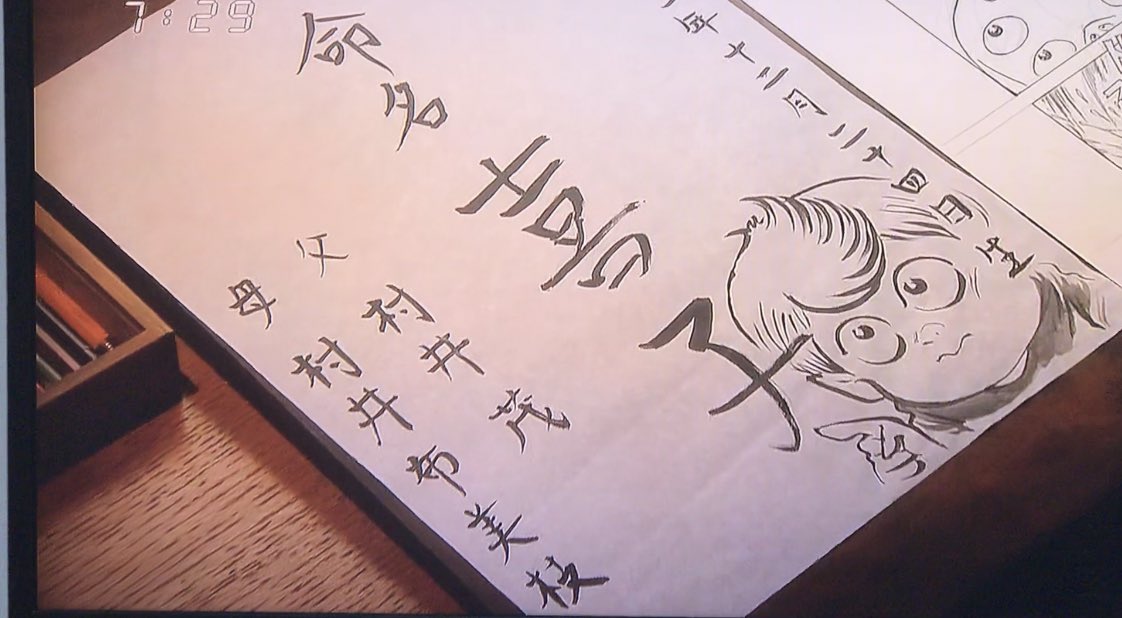 7:29
年十二月二十四日生
命名 喜子
父 村井 茂
母 村井 布美枝